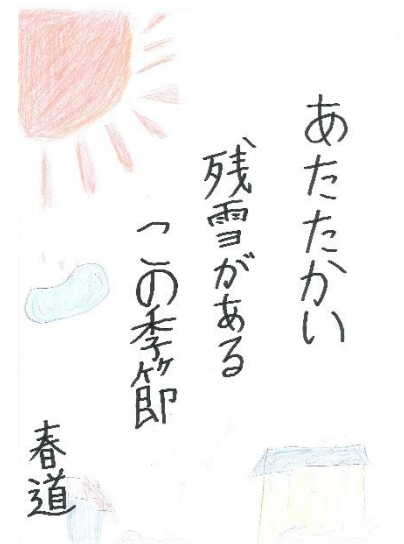 あたたかい
残雪がある
この季節
春道